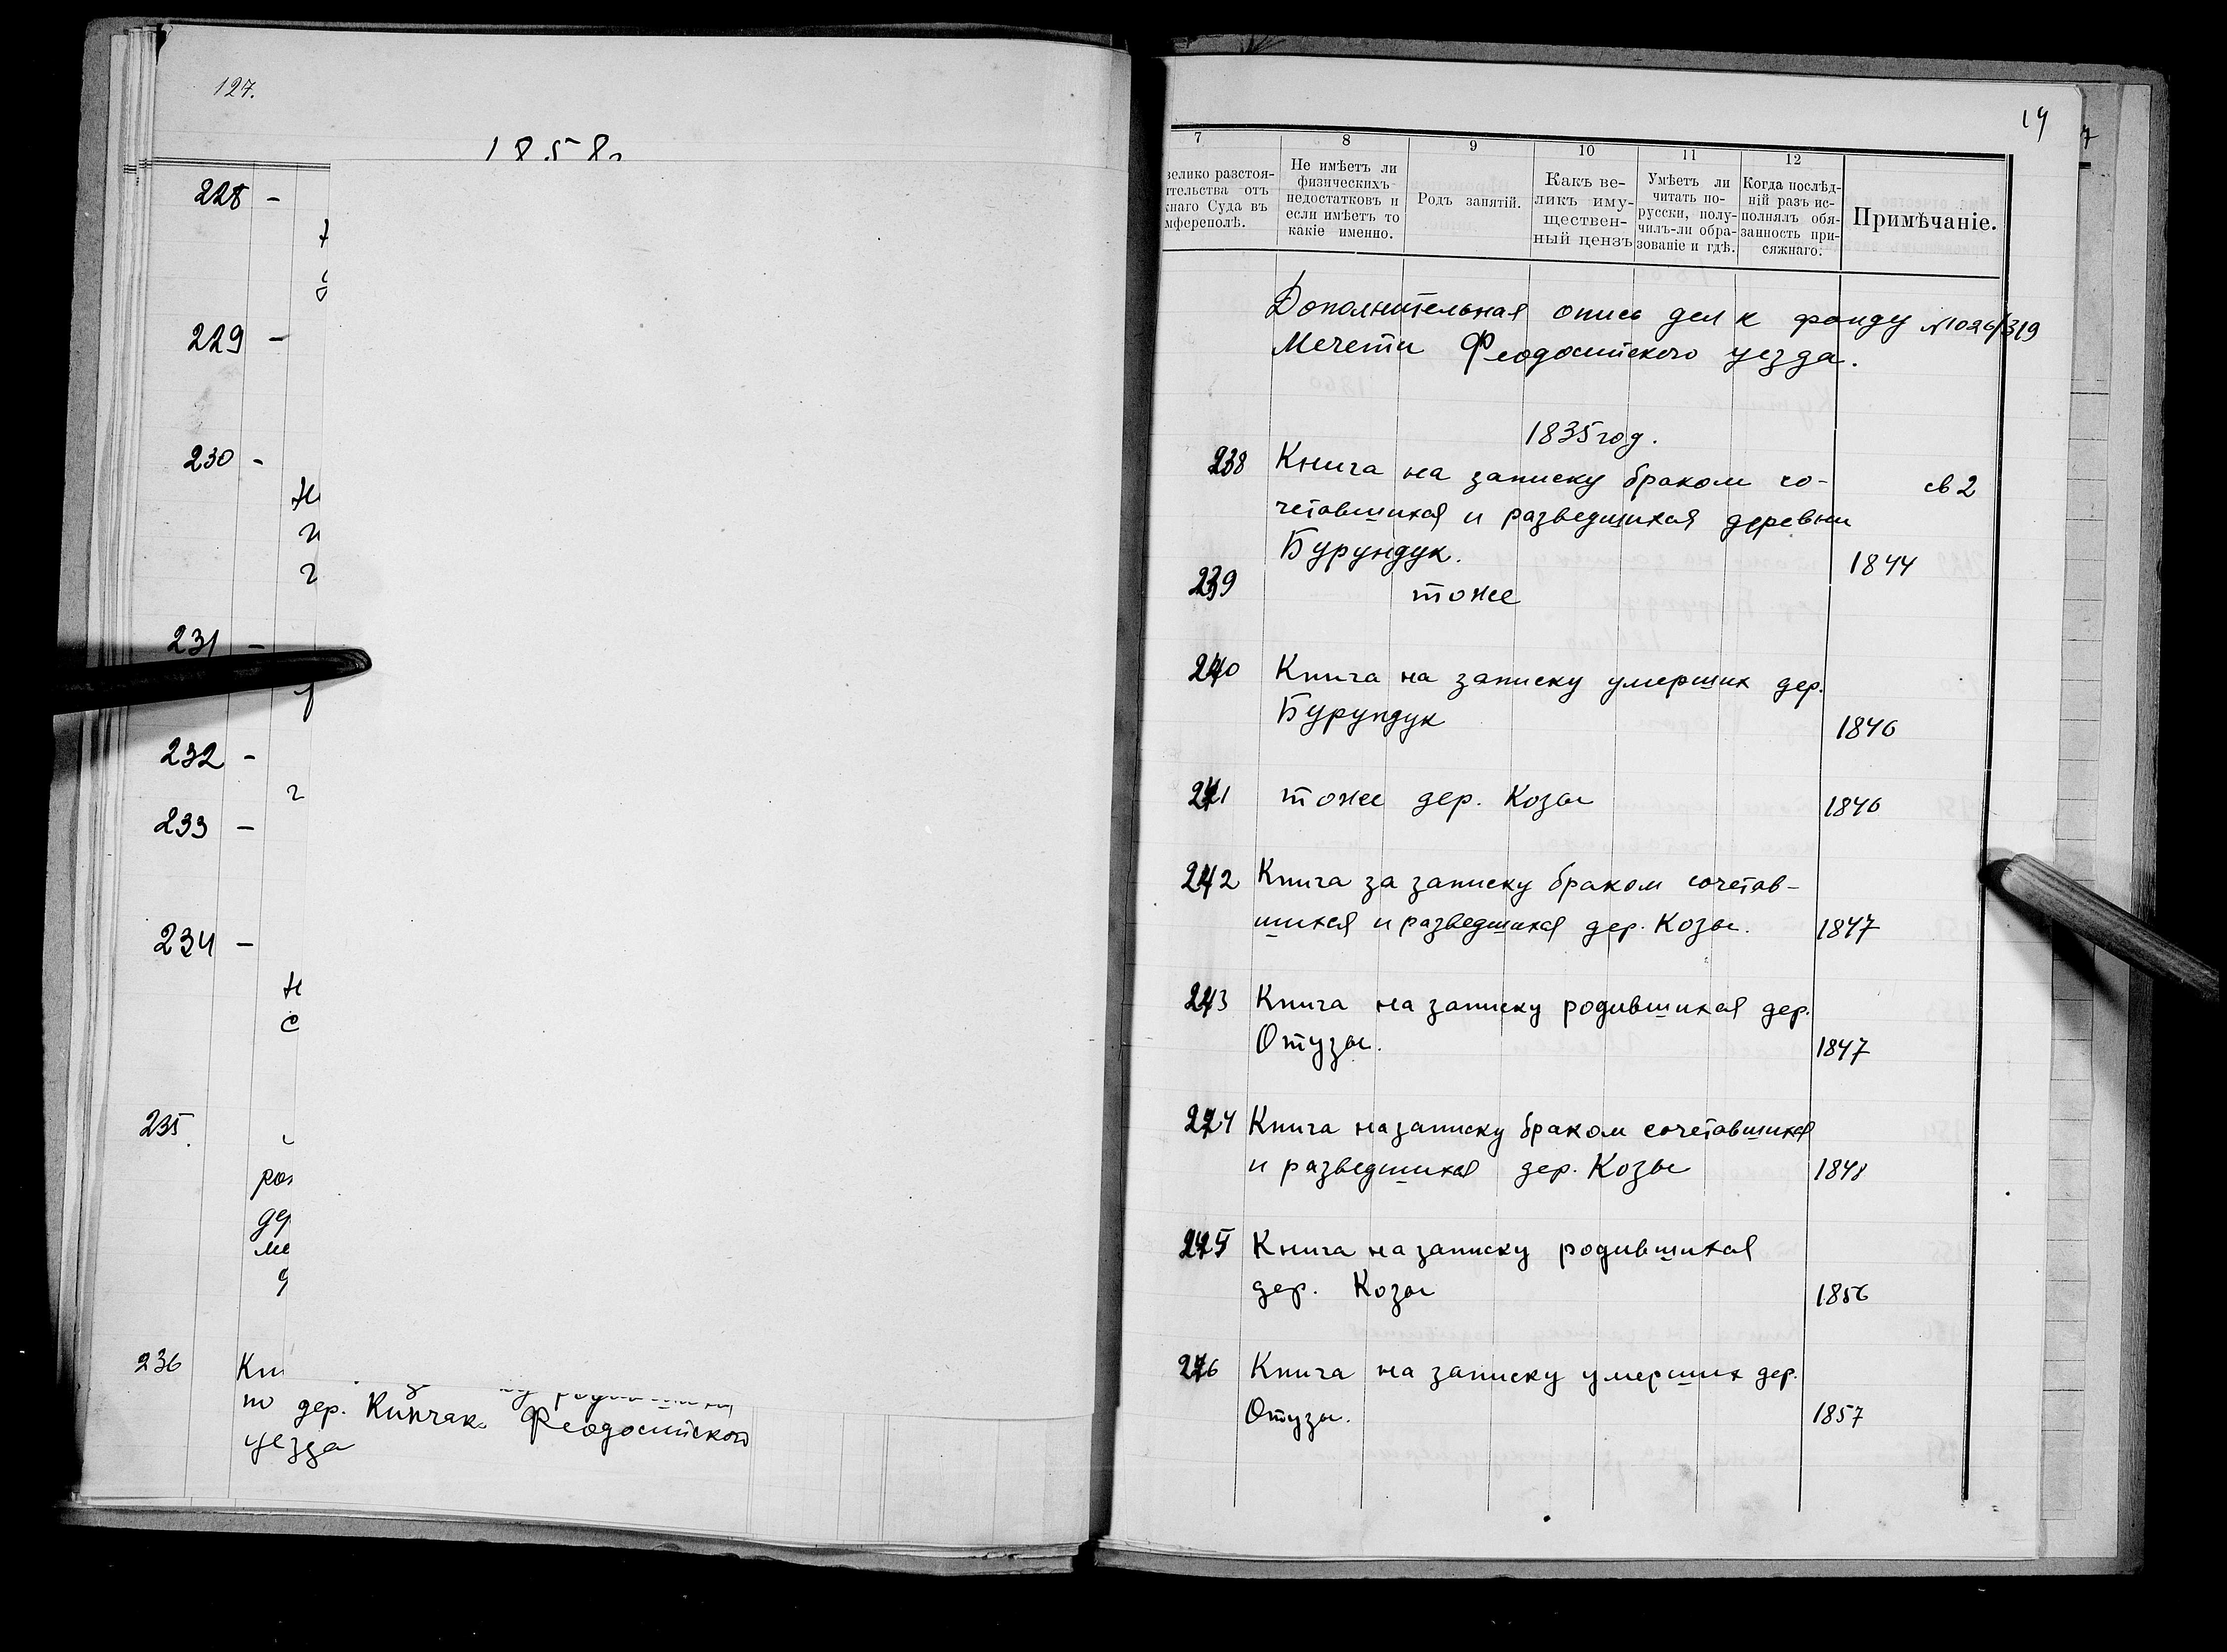 127.
1858г
228 -
229 -
230 -
231 -
232 -
233 -
234 -
235
236
по дер. Кипчак Феодосийского
уезда
19
7
8
9
10
11
12
велико разстоя-
тельства отъ
жнаго Суда въ
мферополѣ.
Не имѣетъ ли
физическихъ
недостатковъ и
если имѣетъ то
какіе именно.
Родъ занятій.
Какъ ве-
ликъ иму-
ществен-
ный цензъ
Умѣетъ ли
читать по-
русски, полу-
чилъ-ли обра-
зованіе и гдѣ.
Когда послѣд-
ній разъ ис-
полнялъ обя-
занность при-
сяжнаго.
Примѣчаніе.
Дополнительная опись дел к фонду
Мечети Феодосийского уезда.
1835 год.
238 Книга на записку браком со-
св 2
четавшихся и разведшихся деревни
Бурундук. 1844
239 тоже
240 Книга на записку умерших дер.
Бурундук 1846
241 тоже дер. Козы 1846
242 Книга за записку браком сочетав-
шихся и разведшихся дер. Козы. 1847
243 Книга на записку родившихся дер.
Отузы. 1847
244 Книга на записку браком сочетавшихся
и разведшихся дер. Козы 1848
245 Книга на записку родившихся
дер. Козы 1856
246 Книга на записку умерших дер.
Отузы. 1857